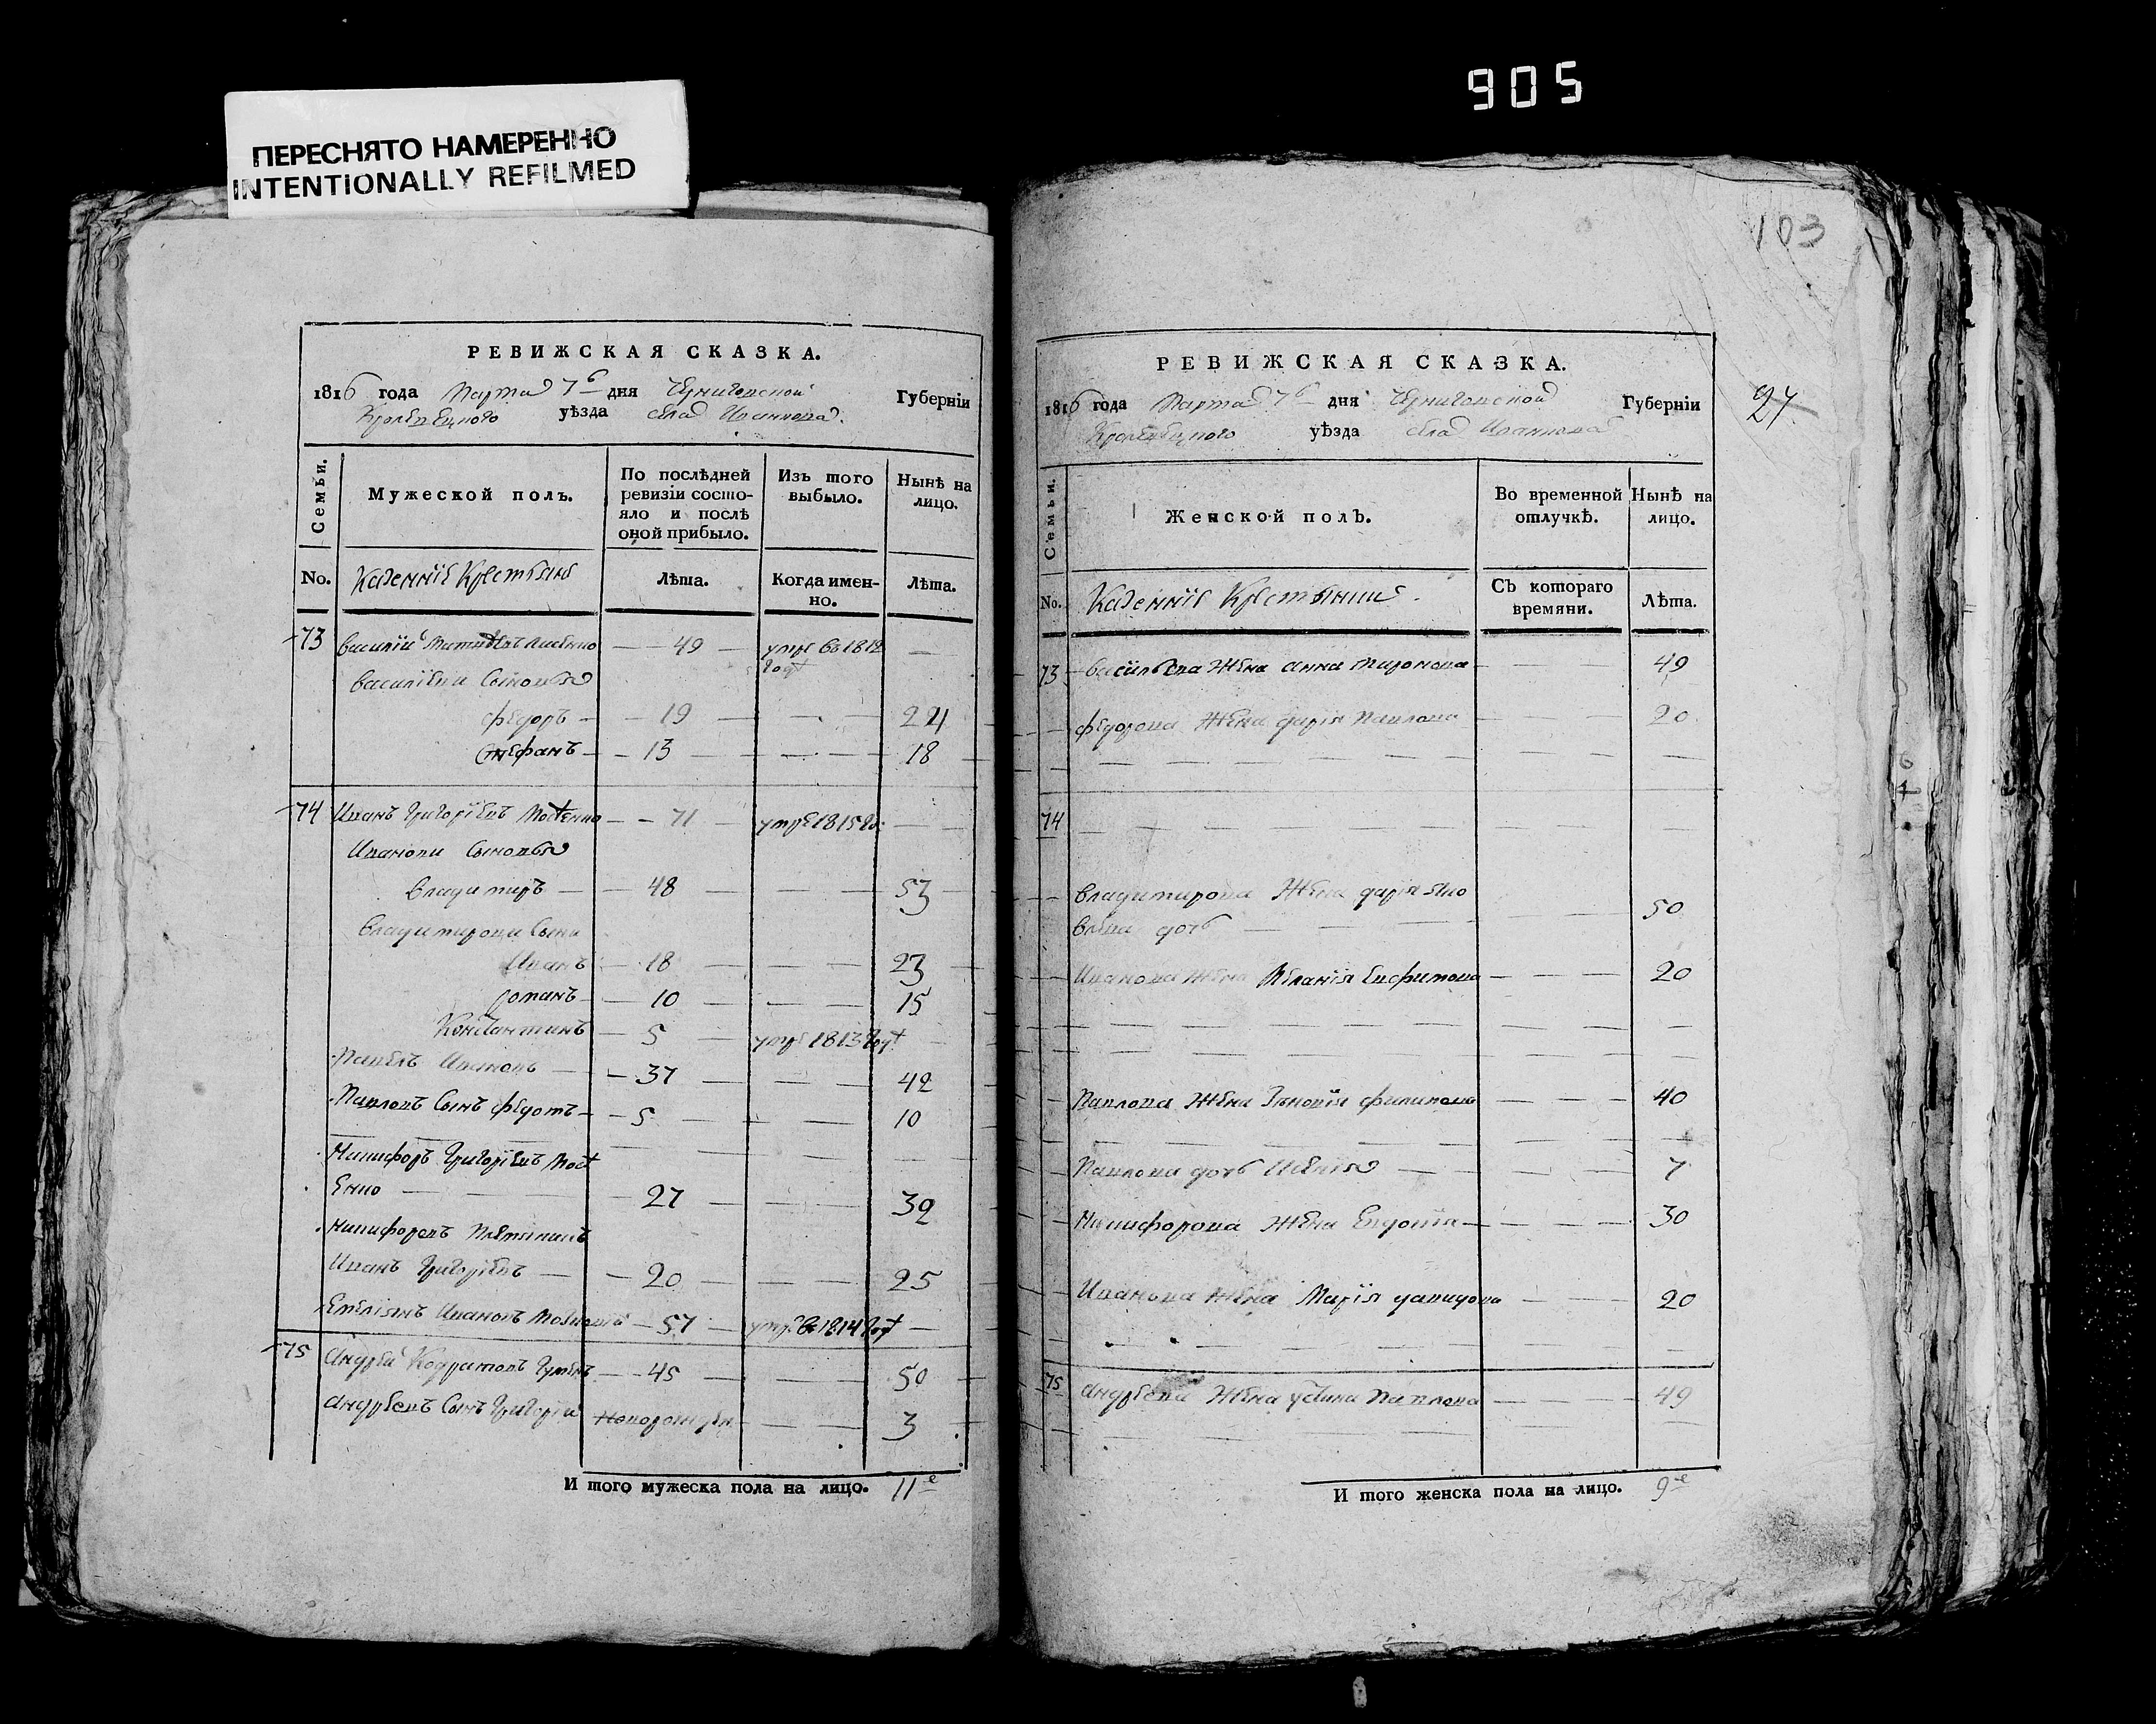 905
ПЕРЕСНЯТО НАМЕРЕННО
INTENTIONALLY REFILMED
103
РЕВИЖСКАЯ СКАЗКА.
1816 года Марта 7 дня Черниговской Губерніи
Кролевецкого уѣзда села
Семьи.
Мужеской полъ.
По послѣдней ревизіи состояло и послѣ оной прибыло.
Изъ того выбыло.
Нынѣ на лицо.
No.
Казенніе Крестьяне
Лѣта.
Когда именно.
Лѣта.
73 Василій 49 умре въ 1812 году —
Василіеви Сыновья
Федоръ 19 — 24
Стефанъ 13 — 18
74 Иванъ Григоріевъ 71 умре 1815 го: —
Иванови Сыновья
Владимиръ 48 — 53
Владимирови Сыни
Иванъ 18 — 23
Романъ 10 — 15
Константинъ 5 умре 1813 году
Павелъ Ивановъ 37 — 42
Павловъ Сынъ Федотъ 5 — 10
Никифоръ Григоріевъ
енко 27 — 32
Никифоровъ Племянникъ
Иванъ Григоріевъ 20 — 25
Емеліянъ Ивановъ 57 умре въ 1814 году —
75 Андрей Кодратовъ 45 — 50
Андреевъ Сынъ Григорій Новорожден — 3
И того мужеска пола на лицо. 11е
РЕВИЖСКАЯ СКАЗКА.
1816 года Марта 7 дня Черниговской Губерніи
Кролевецкого уѣзда села
27
Семьи.
Женской полъ.
Во временной отлучкѣ.
Нынѣ на лицо.
No.
Казенніе Крестьянки.
Съ котораго времяни.
Лѣта.
73 Васильева Жена Анна Миронова 49
Федорова Жена Дарія Павлова 20
74
Владимирова Жена Дарія Яко
влева дочь 50
Иванова Жена Меланія Евфимова 20
Павлова Жена Зѣновія Филипова 40
Павлова дочь 7
Никифорова Жена Евдокія 30
Иванова Жена Марія Давидова 20
75 Андреева Жена Устина Павлова 49
И того женска пола на лицо. 9е